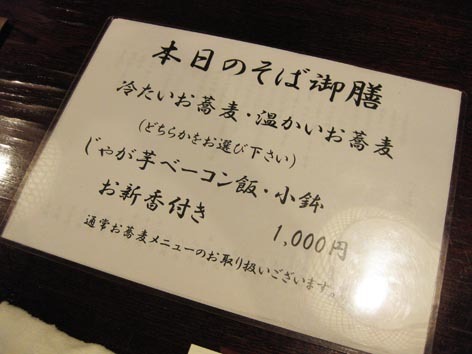 本日のそば御膳
冷たいお蕎麦・温かいお蕎麦
(どちらかをお選び下さい)
じゃが芋ベーコン飯・小鉢
お新香付き
1,000円
通常お蕎麦メニューのお取り扱いございます。